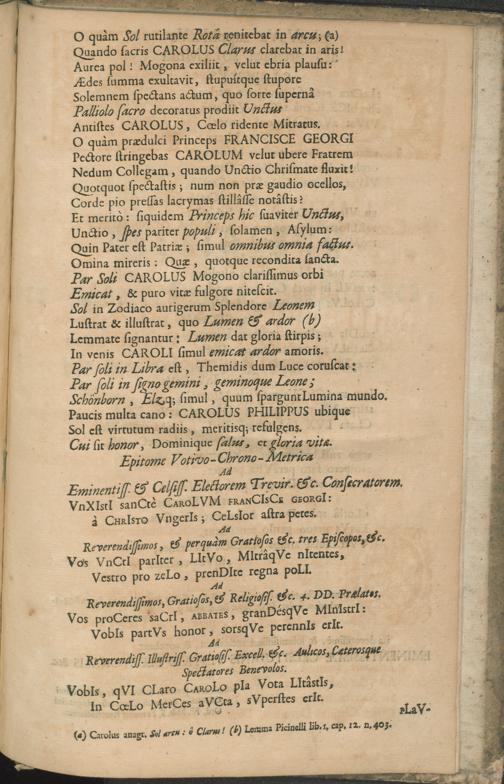 O quàm Sol rutilante Rotâ renitebat in arcu; (a)
Quando sacris CAROLUS Clarus clarebat in aris!
Aurea pol! Mogona exiliit, velut ebria plausu:
Ædes summa exultavit, stupuitque stupore
Solemnem spectans actum, quo forte supernâ
Palliolo sacro decoratus prodiit Unctus
Antistes CAROLUS, Cœlo ridente Mitratus.
O quàm prædulci Princeps FRANCISCE GEORGI
Pectore stringebas CAROLUM velut ubere Fratrem
Nedum Collegam, quando Unctio Chrismate fluxit!
Quotquot spectastis; num non præ gaudio ocellos,
Corde pio pressas lacrymas stillâsse notâstis?
Et meritò: siquidem Princeps hic suaviter Unctus,
Unctio, spes pariter populi, solamen, Asylum:
Quin Pater est Patriæ; simul omnibus omnia factus.
Omina mireris: Quæ, quotque recondita sancta.
Par Soli CAROLUS Mogono clarissimus orbi
Emicat, & puro vitæ fulgore nitescit.
Sol in Zodiaco aurigerum Splendore Leonem
Lustrat & illustrat, quo Lumen & ardor (b)
Lemmate signantur: Lumen dat gloria stirpis;
In venis CAROLI simul emicat ardor amoris.
Par soli in Libra est, Themidis dum Luce coruscat:
Par soli in signo gemini, geminoque Leone;
Schönborn, Elzq; simul, quum spargunt Lumina mundo.
Paucis multa cano: CAROLUS PHILIPPUS ubique
Sol est virtutum radiis, meritisq; refulgens.
Cui sit honor, Dominique salus, et gloria vitæ.
Epitome Votivo-Chrono-Metrica
Ad
Eminentiss. & Celsiss. Electorem Trevir. &c. Consecratorem.
VnXIstI sanCtè CaroLVM FRANCISCE GEORGI:
à ChrIsto VngerIs; CeLsIor astra petes.
Ad
Reverendissimos, & perquàm Gratiosos &c. tres Episcopos, &c.
Vos VnCtI parIter, LItVo, MItrâqVe nItentes,
Vestro pro zeLo, prenDIte regna poLI.
Ad
Reverendissimos, Gratiosos, & Religiosiss. &c. 4. DD. Prælatos.
Vos proCeres saCrI, ABBATES, granDésqVe MInIstrI:
VobIs partVs honor, sorsqVe perennIs erIt.
Ad
Reverendiss. Illustriss. Gratiosiss. Excell. &c. Aulicos, Cæterosque
Spectatores Benevolos.
VobIs, qVI CLaro CaroLo pIa Vota LItâstIs,
In CœLo MerCes aVCta, sVperstes erIt.
PLaV-
(a) Carolus anagr. Sol arcu: ô Clarus! (b) Lemma Picinelli lib. 1, cap. 12. n. 403.